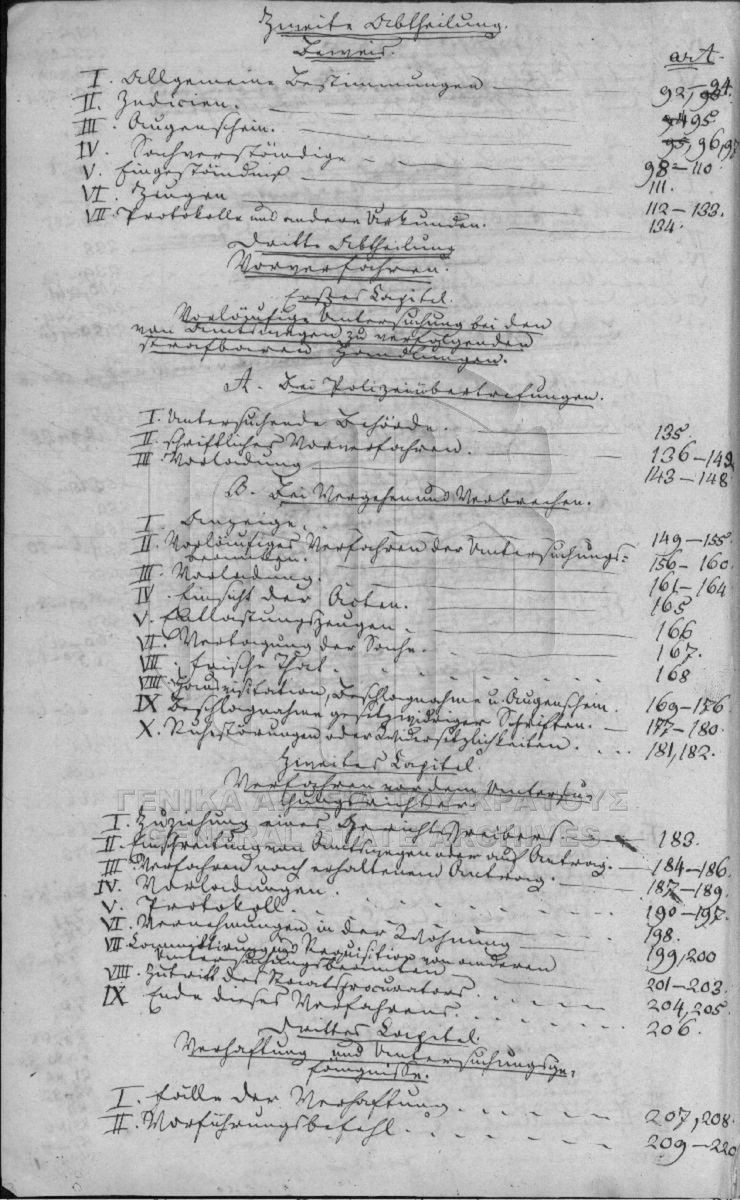 Zweite Abtheilung.
Beweis.
art.
I. Allgemeine Bestimmungen 92, 94.
II. Indicien. 95
III. Augenschein. 96, 97
IV. Sachverständige 98–110
V. Eingeständniß 111.
VI. Zeugen 112–133.
VII. Protokolle und andere Urkunden. 134.
Dritte Abtheilung
Vorverfahren.
Erstes Capitel.
Vorläufige Untersuchung bei den
von Amtswegen zu verfolgenden
strafbaren Handlungen.
A. Bei Polizeiübertretungen.
I. Untersuchende Behörde. 135.
II. schriftliches Vorverfahren. 136–142
III. Vorladung 143–148
B. Bei Vergehen und Verbrechen.
I. Anzeige. 149–155.
II. Vorläufiges Verfahren der Untersuchungs-
beamten. 156–160.
III. Vorladung. 161–164
IV. Einsicht der Acten. 165
V. Entlastungszeugen 166
VI. Vertagung der Sache. 167.
VII. Frische That. 168
VIII. Hausvisitation, Beschlagnahme u. Augenschein. 169–176
IX Beschlagnahme gesetzwidriger Schriften. 177–180.
X. Ruhestörungen oder Widersetzlichkeiten. 181, 182.
Zweites Capitel.
Verfahren vor dem Untersu-
chungsrichter.
ΓΕΝΙΚΑ ΑΡΧΕΙΑ ΤΟΥ ΚΡΑΤΟΥΣ
GENERAL STATE ARCHIVES
I. Zuziehung eines Gerichtsschreibers 183.
II. Einschreitung von Amtswegen oder auf Antrag. 184–186.
III. Verfahren nach erhaltenem Antrag. 187–189.
IV. Vorladungen. 190–197.
V. Protokoll. 198.
VI. Vernehmungen in der Wohnung 199, 200
VII. Committirung und Requisition von anderen
Untersuchungsbeamten 201–203.
VIII. Zutritt des Staatsprocurators. 204, 205.
IX Ende dieses Verfahrens. 206.
Drittes Capitel.
Verhaftung und Untersuchungsge-
fängnisse.
I. Fälle der Verhaftung. 207, 208.
II. Vorführungsbefehl. 209–220